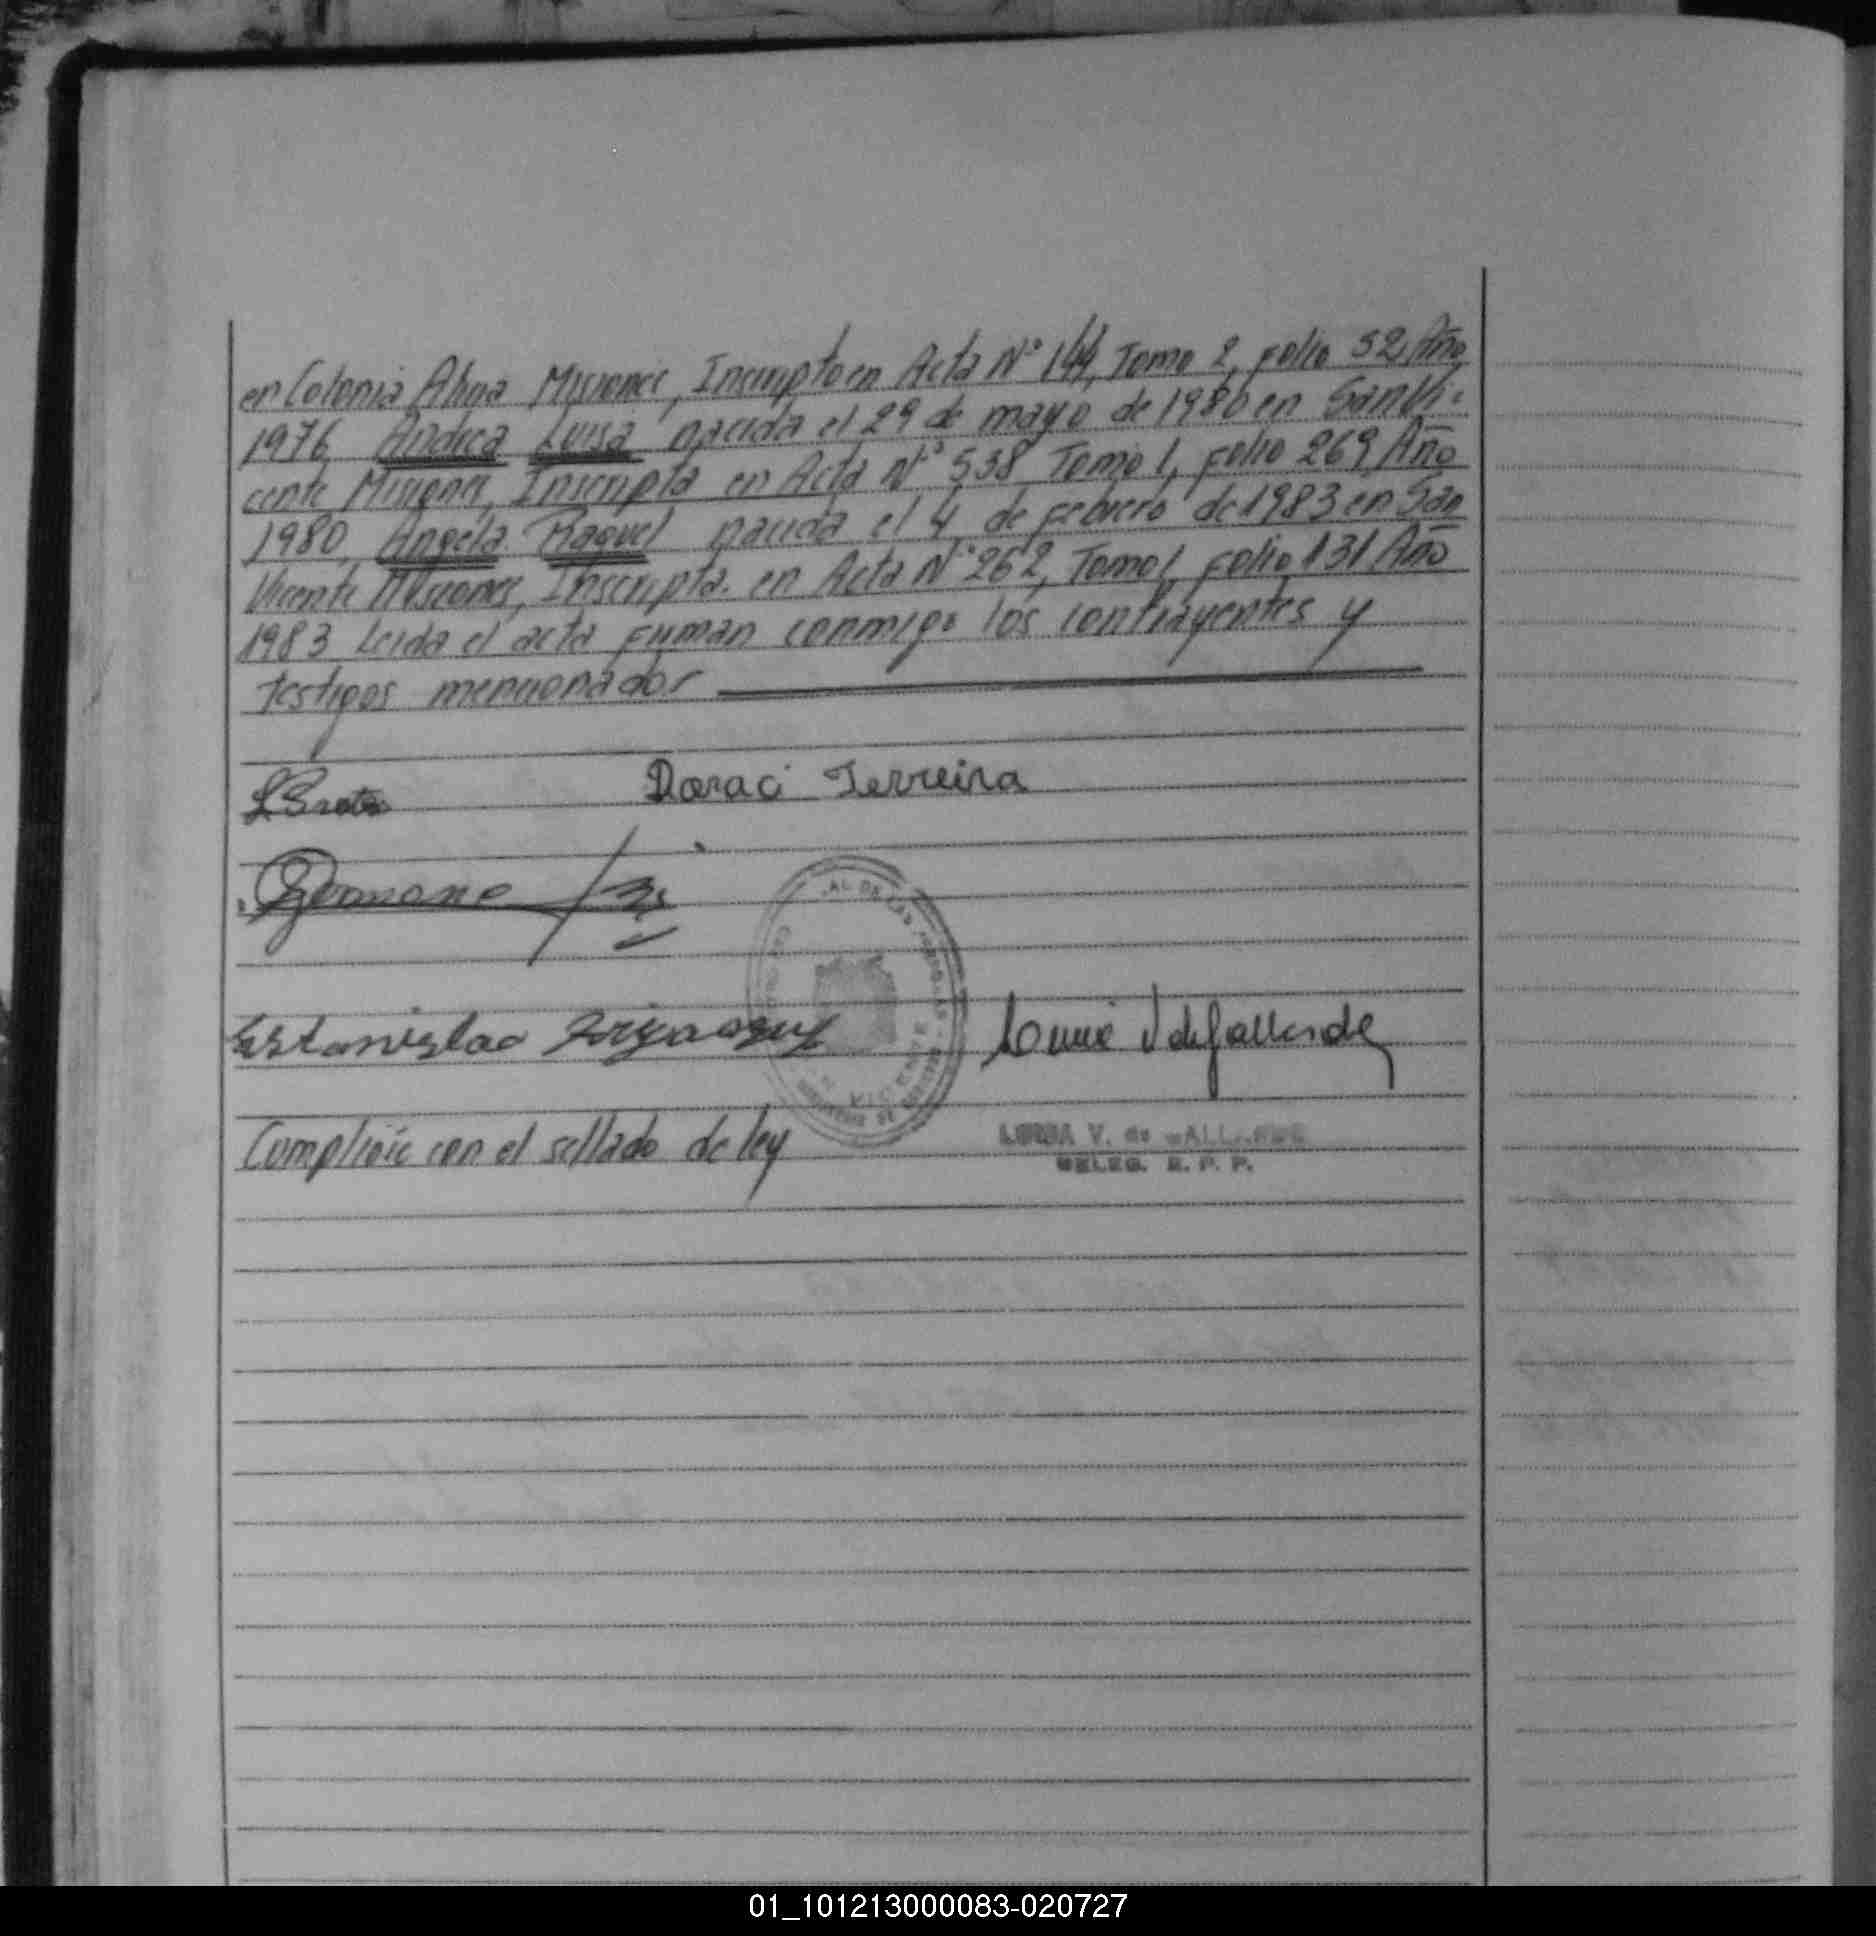 en Colonia Alma Misiones, Inscripto en Acta N° 144, Tomo 2, folio 52, Año
1976, Andrea Luisa nacida el 29 de mayo de 1980 en San Vi-
cente Misiones, Inscripta en Acta N° 538 Tomo 1, folio 269, Año
1980, Angela Raquel nacida el 4 de febrero de 1983 en San
Vicente Misiones, Inscripta en Acta N° 262, Tomo 1, folio 131 Año
1983 Leida el acta firman conmigo los contrayentes y
testigos mencionados
Doraci Ferreira
Estanislao
V de Gallende
Complióse con el sellado de ley
LUISA V. de GALLENDE
DELEG. R. P. P.
01_101213000083-020727